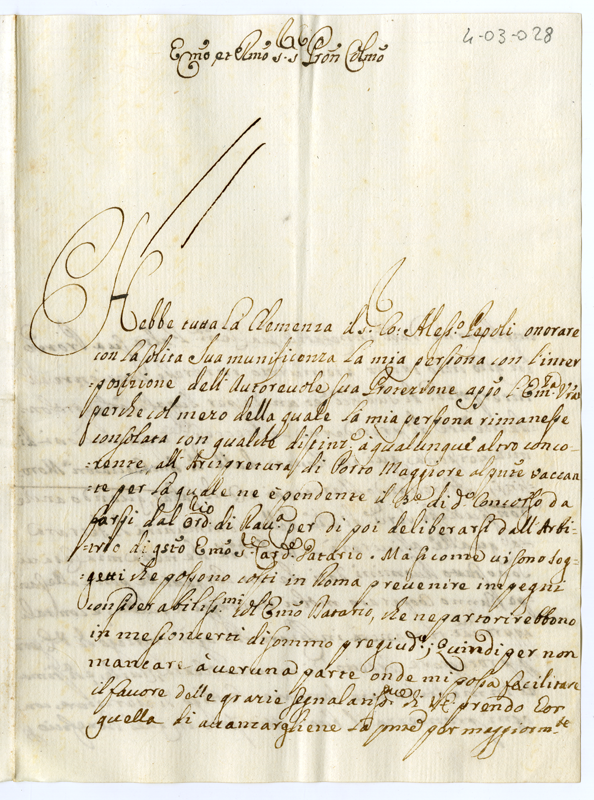 4-03-028
Emo et Rmo Sig Pron Colmo
Hebbe tutta la Clemenza il Sr Co: Alesso Pepoli onorare
con la solita sua munificenza la mia persona con l'inter
=posizione dell'Autoreuole sua Protezzione appo l'Emza Vra
perche col mezo della quale la mia persona rimanesse
consolata con qualche distinto à qualunque altro conco=
=rente all'Arcipretura di Porto Maggiore al pnte vaccan
=te per la quale ne è pendente il di do Concorso da
farsi dal di Raua per di poi deliberarsi dall'Arbi=
=trio di qsto Emo Sr Carde Datario. Ma sicome vi sono sog=
=getti che possono costì in Roma prevenire impegni
considerabilissmi col Emo Datario, che ne partorirebbono
in me sconcerti di sommo pregiude; Quindi per non
mancare à ueruna parte onde mi possa facilitare
il fauore delle grazie segnalatisse di VE prendo
quella di auanzargliene la pnte per maggiormte